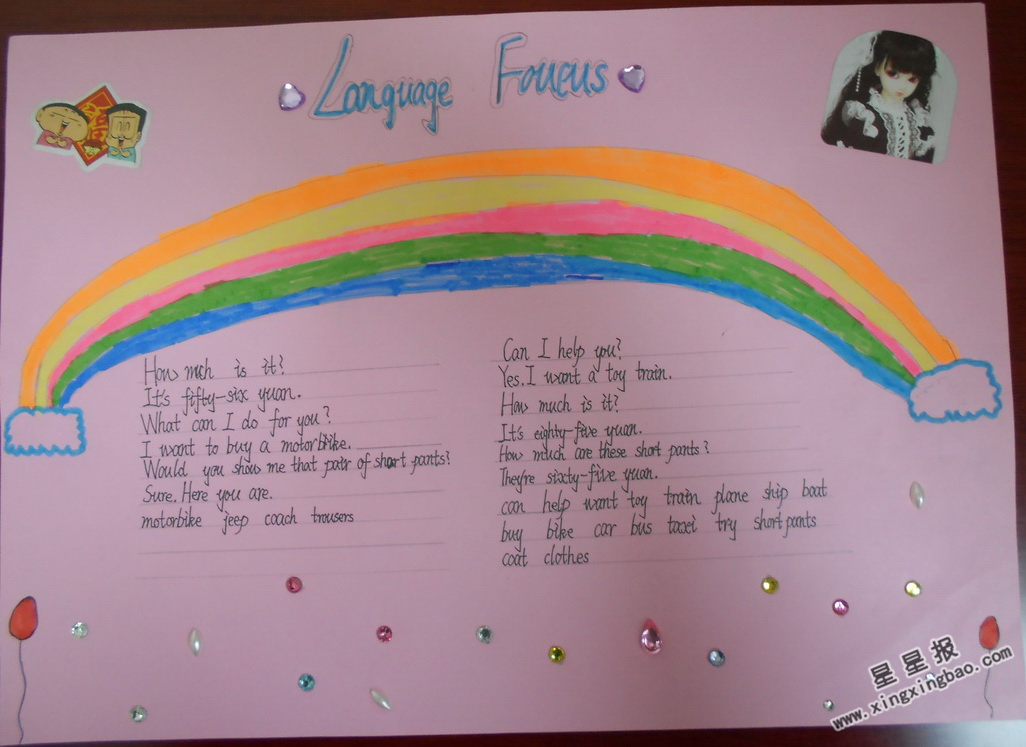 Language Foucus
How much is it?
It's fifty-six yuan.
What can I do for you?
I want to buy a motorbike.
Would you show me that pair of short pants?
Sure. Here you are.
motorbike jeep coach trousers
Can I help you?
Yes. I want a toy train.
How much is it?
It's eighty-five yuan.
How much are these short pants?
They're sixty-five yuan.
can help want toy train plane ship boat
buy bike car bus taxi try short pants
coat clothes
星星报
www.xingxingbao.com